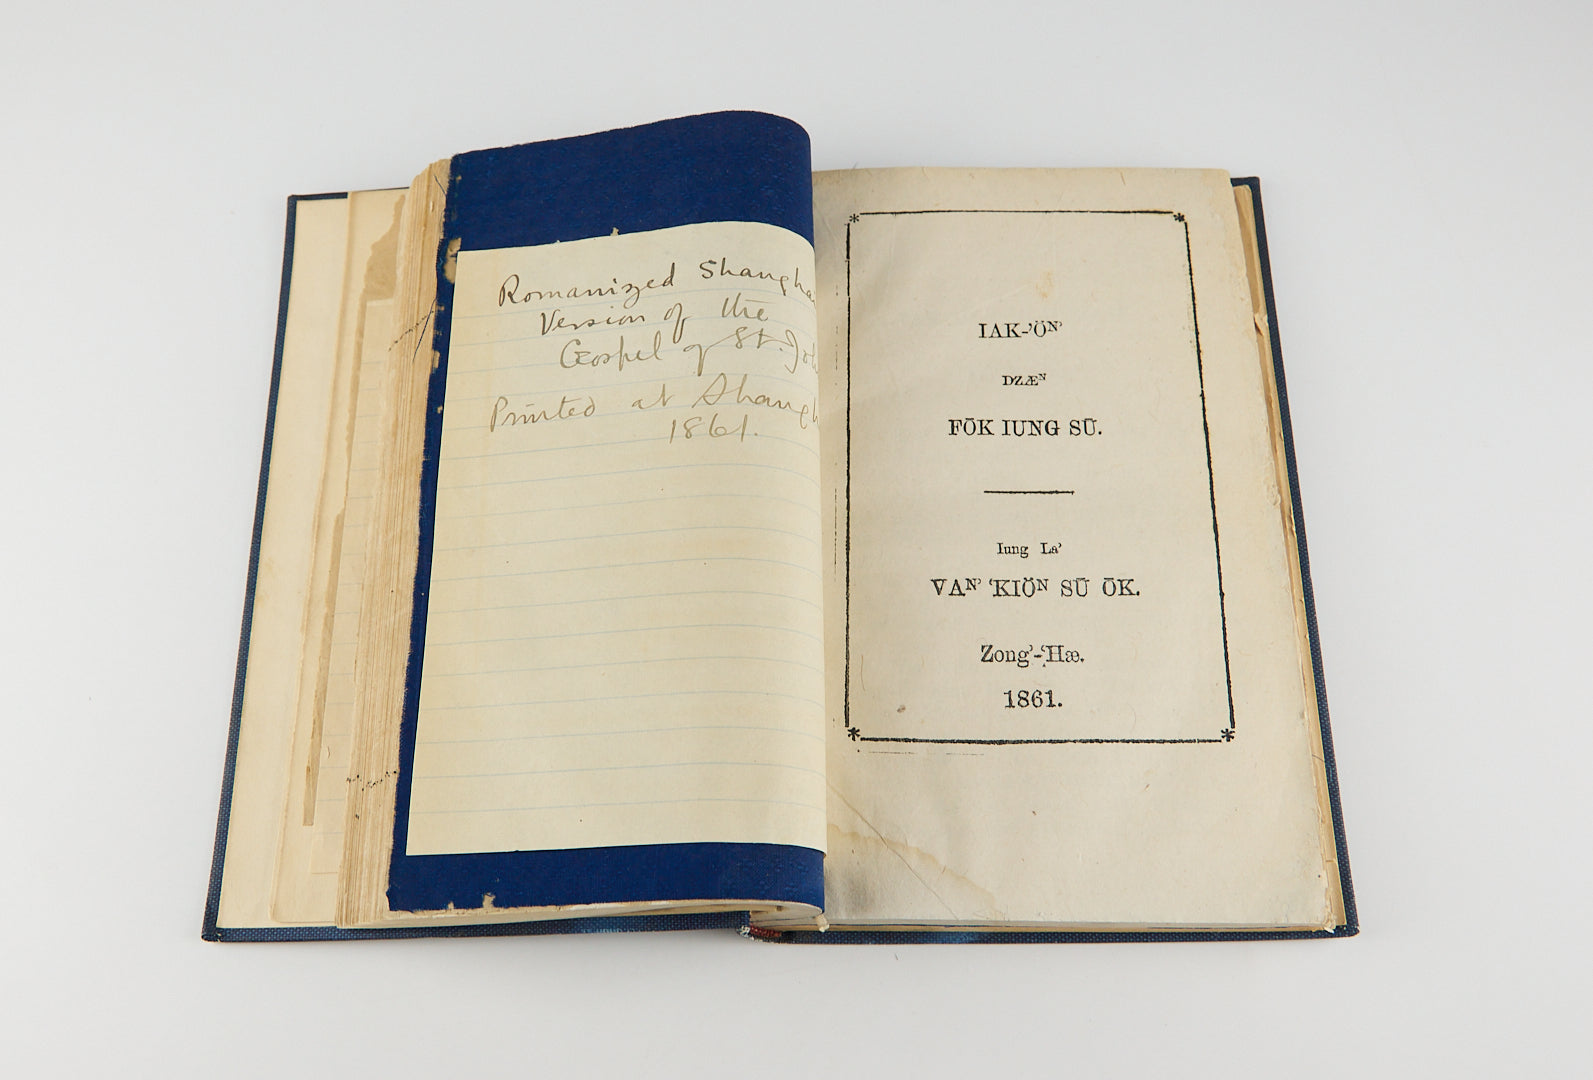 Romanized Shangha
Version of the
Gospel of St. Joh
Printed at Shangh
1861.
IAK-’Öᴺʼ
DZÆᴺ
FŌK IUNG SŪ.
Iung La’
VAᴺ’ ‘KIÖᴺ SŪ ŌK.
Zong’-‘Hæ.
1861.